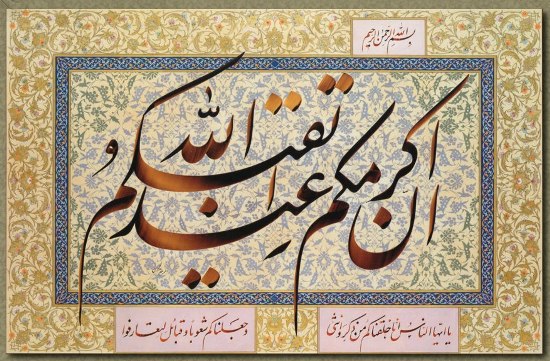 بسم الله الرحمن الرحیم
ان اکرمکم عند الله اتقیکم
یا ایها الناس انا خلقناکم من ذکر و انثی
و جعلناکم شعوبا و قبائل لتعارفوا